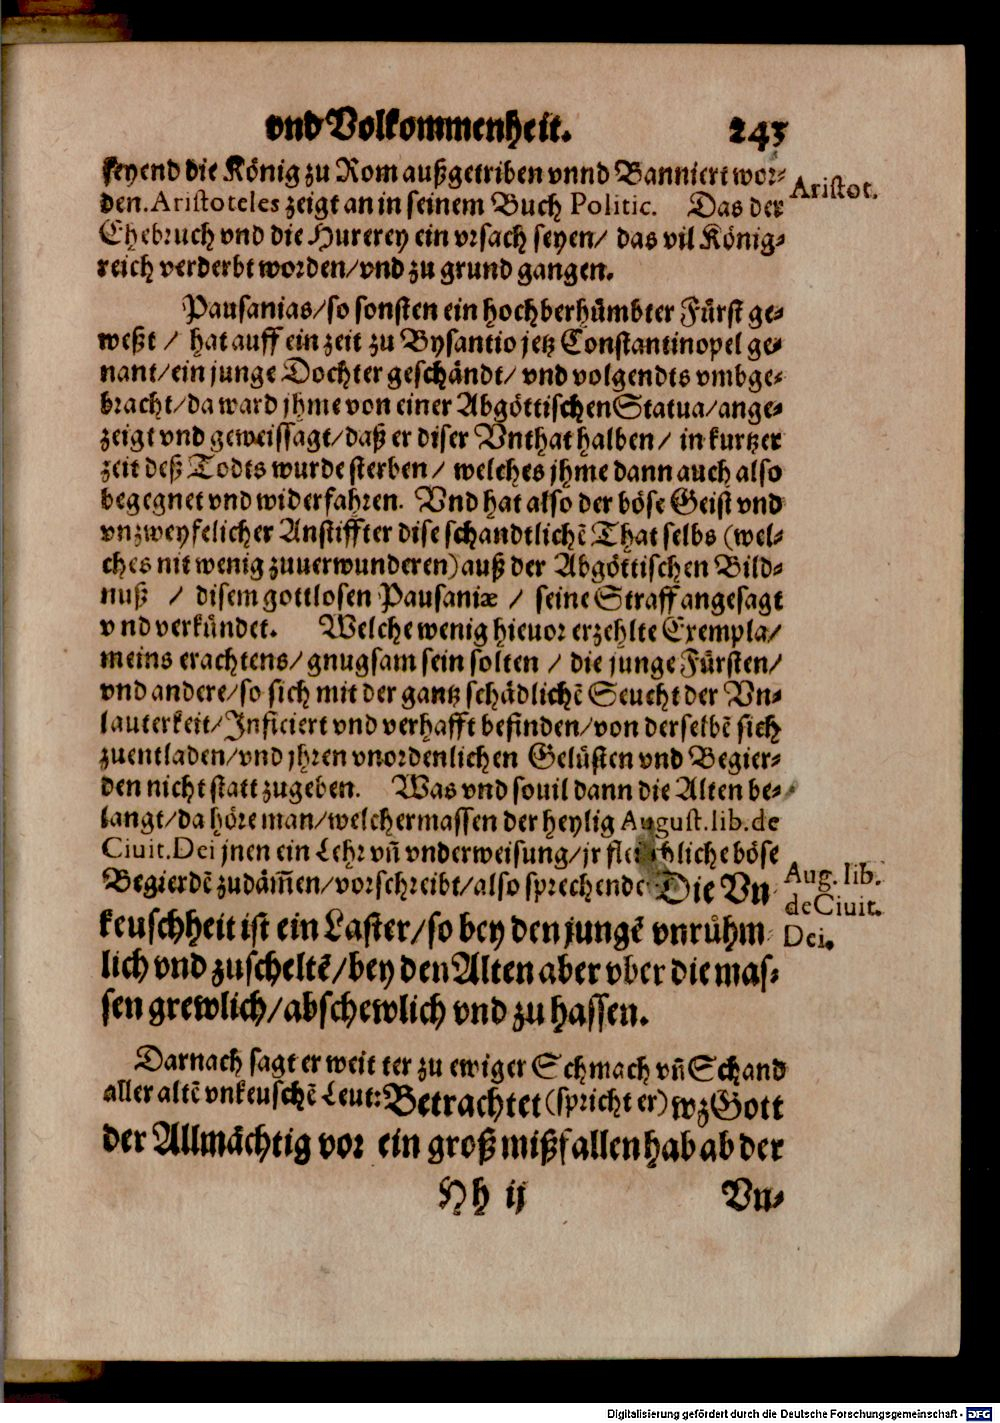 vnd Volkommenheit. 243
seyend die König zu Rom außgetriben vnnd Banniert wor-
den. Aristoteles zeigt an in seinem Buch Politic. Das der
Aristot.
Ehebruch vnd die Hurerey ein vrsach seyen/ das vil König-
reich verderbt worden/vnd zu grund gangen.
Pausanias/so sonsten ein hochberhümbter Fürst ge-
weßt / hat auff ein zeit zu Bysantio jetz Constantinopel ge-
nant/ein junge Dochter geschändt/ vnd volgendts vmbge-
bracht/da ward jhme von einer Abgöttischen Statua/ange-
zeigt vnd geweissagt/daß er diser Vnthat halben/ in kurtzer
zeit deß Todts wurde sterben/ welches jhme dann auch also
begegnet vnd widerfahren. Vnd hat also der böse Geist vnd
vnzweyfelicher Anstiffter dise schandtlichē That selbs (wel-
ches nit wenig zuuerwunderen) auß der Abgöttischen Bild-
nuß / disem gottlosen Pausaniæ / seine Straff angesagt
vnd verkündet. Welche wenig hieuor erzehlte Exempla/
meins erachtens/ gnugsam sein solten / die junge Fürsten/
vnd andere/so sich mit der gantz schädlichē Seucht der Vn-
lauterkeit/Inficiert vnd verhafft befinden/von derselbē sich
zuentladen/vnd jhren vnordenlichen Gelüsten vnd Begier-
den nicht statt zugeben. Was vnd souil dann die Alten be-
langt/da höre man/welchermassen der heylig August. lib. de
Ciuit. Dei jnen ein Lehr vn̄ vnderweisung/jr fleischliche böse
Begierdē zudäm̄en/vorschreibt/also sprechende Die Vn
Aug. lib.
de Ciuit.
Dei.
keuschheit ist ein Laster/so bey den jungē vnrühm
lich vnd zuscheltē/bey den Alten aber vber die mas-
sen grewlich/abschewlich vnd zu hassen.
Darnach sagt er weitter zu ewiger Schmach vn̄ Schand
aller altē vnkeuschē Leut: Betrachtet (spricht er) wz Gott
der Allmächtig vor ein groß mißfallen hab ab der
Hh ij Vn-
Digitalisierung gefördert durch die Deutsche Forschungsgemeinschaft - DFG